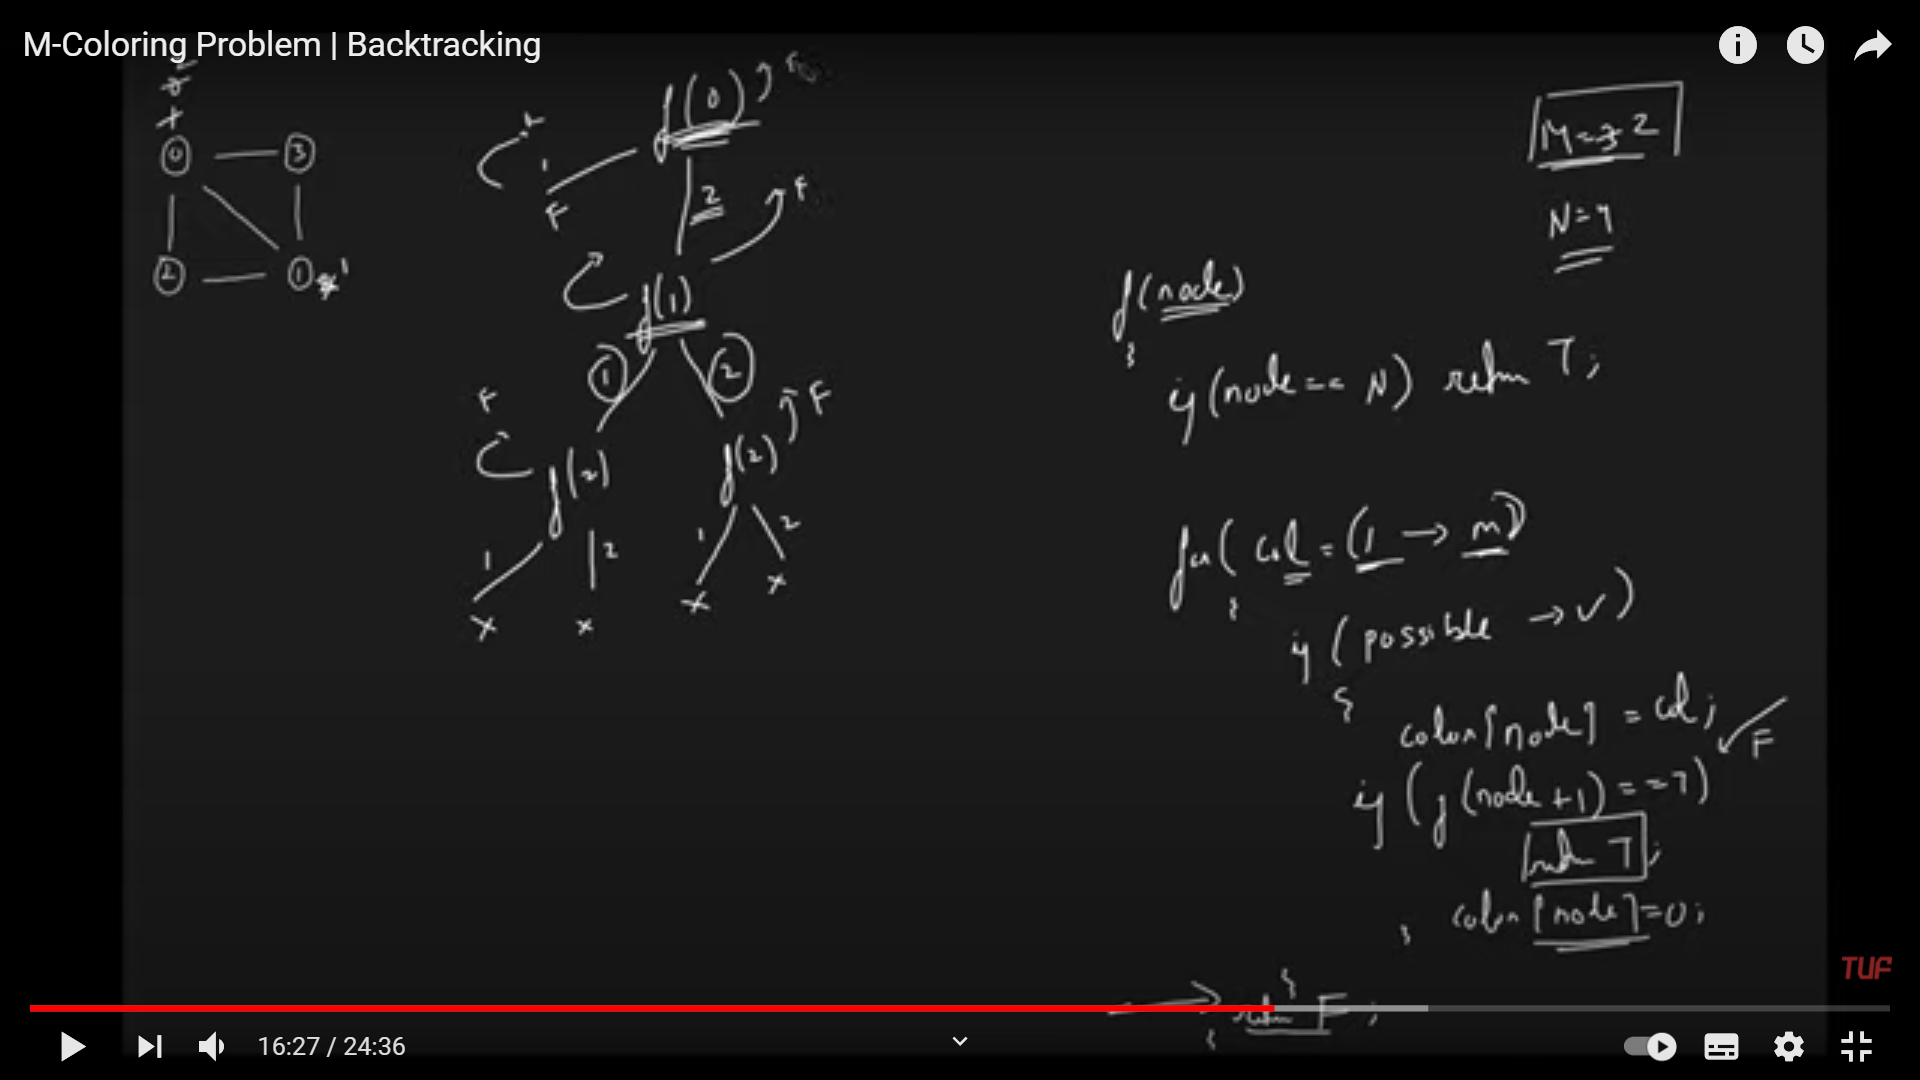 M-Coloring Problem | Backtracking
0 3
2 1
f(0)
1
F
2
F
f(1)
1 2
F
F
f(2) f(2)
1 2 1 2
x x x x
M = 3 2
N = 4
f(node)
{
if (node == N) return T;
for( col = (1 → m)
{
if ( possible → ✓ )
{
color[node] = col;
F
if (f(node+1) == T)
return T;
color[node] = 0;
}
}
return F;
}
TUF
16:27 / 24:36